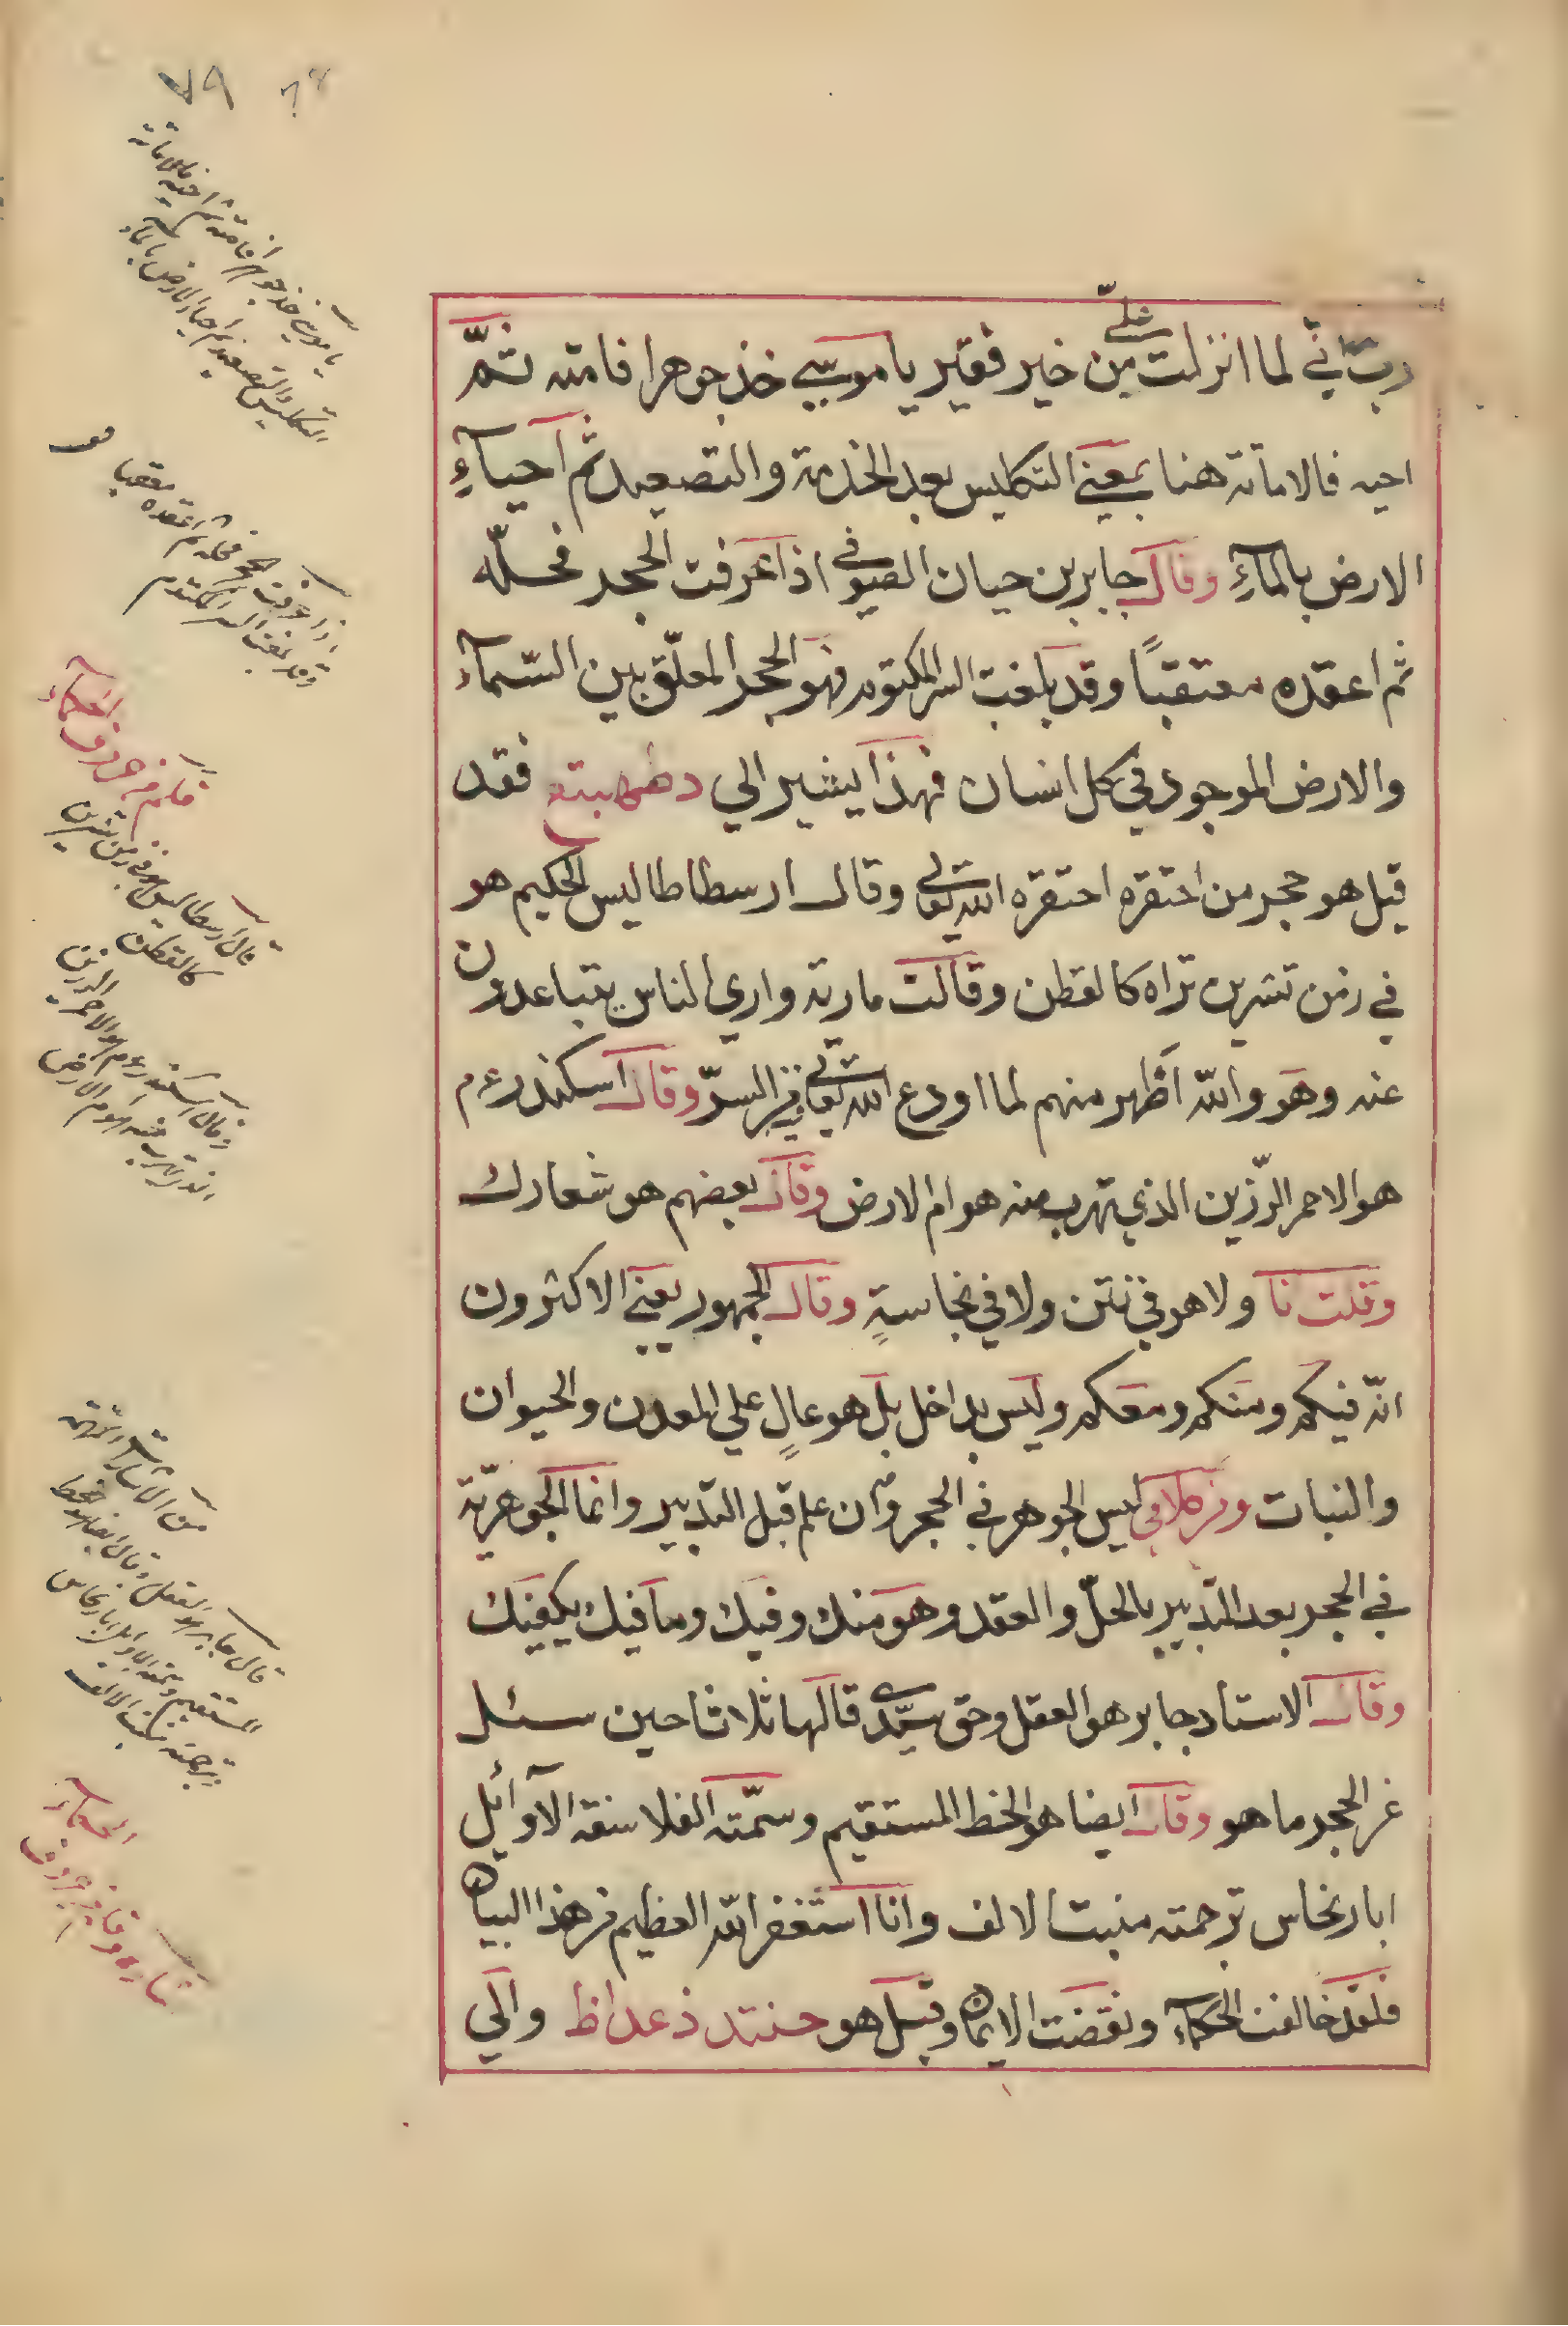 ٧٩
رب اني لما انزلت عليّ من خير فقير يا موسي خذ جوهرا فامته ثمّ
احيه فالاماتة هنا بمعني التكليس بعد الخدمة والتصعيد ثم احيآءِ
الارض بالمآءِ وقال جابر بن حيان الصوفي اذا عرفت الحجر فحلّه
ثم اعقده معتقباً وقد بلغت السر المكتوم فهو الحجر المعلّق بين السّمآء
والارض الموجود في كل انسان فهذا يشير الي فقد
قيل هو حجر من احتقره احتقره الله تعالي وقال ارسطاطاليس الحكيم هو
في زمن تشرين تراه كالقطن وقالت مارية واري الناس يتباعدون
عنه وهو والله اظهر منهم لما اودع الله تعالي فيه من السرّ وقال اسكندر ءم
هو الاحمر الرّزين الذي تهرب منه هوام الارض وقال بعضهم هو شعارك
وقلت انا ولا هو في نتن ولا في نجاسةٍ وقال الجمهور يعني الاكثرون
انّه فيكم ومنكم ومعكم وليس بداخل بل هو عالٍ علي المعدن والحيوان
والنبات ومن كلامي ليس الجوهر في الحجر وان علم قبل التدبير وانما الجوهريّة
في الحجر بعد التدبير بالحلّ والعقد وهو منك وفيك وما فيك يكفيك
وقال الاستاد جابر هو العقل وحق سيّدي قالها ثلاثا حين سئل
عن الحجر ما هو وقال ايضا هو الخط المستقيم وسمّته الفلاسفة الآوائل
ابار نحاس ترجمته منبت الالف وانا استغفر الله العظيم من هذا البيان
فلقد خالفت الحكمآء ونقضت الايمان وقيل هو والي
يا موسي خذ جوهرا فامته ثم احيه فالاماتة
التكليس والتصعيد ثم احياء الارض بالماء
اذا عرفت الحجر فحله ثم اعقده معقبا
وقد بلغت السر المكتوم
قال ارسطاليس هو في زمن تشرين
كالقطن
وقال اسكندر ءم هو الاحمر الرزين
الذي تهرب منه هوام الارض
قال جابر هو العقل وقال ايضا هو الخط
المستقيم وسمته الاوائل ابار نحاس
ترجمته منبت الالف